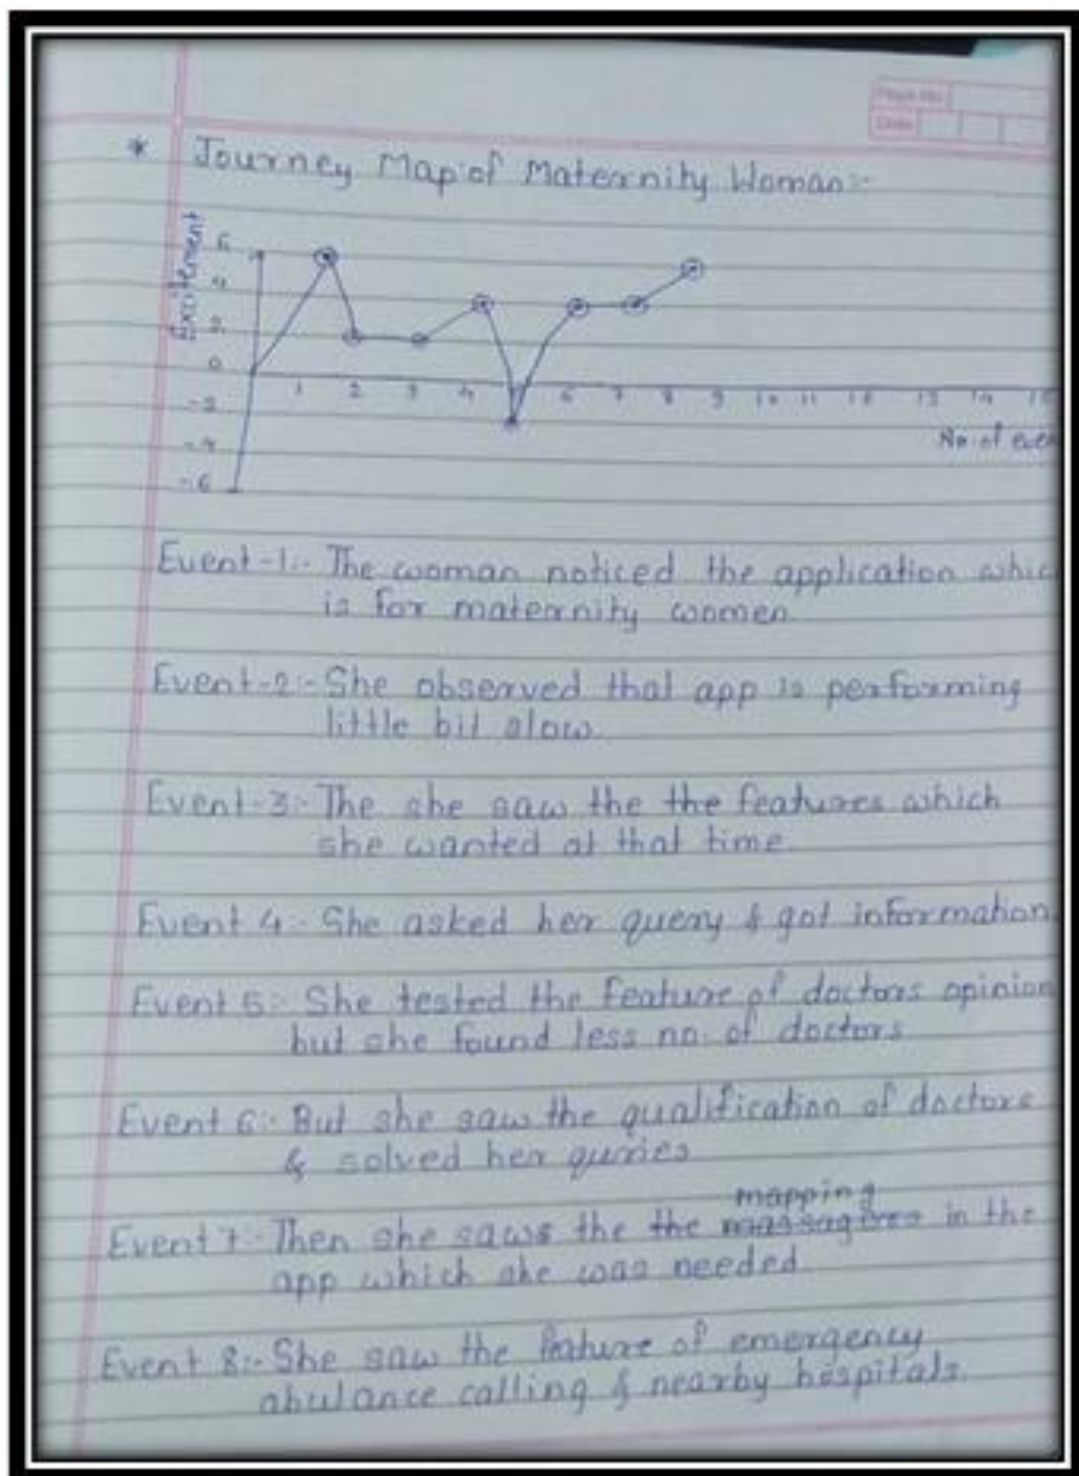 Page No.
Date
* Journey Map of Maternity Woman:-
Excitement
6
4
2
0
-2
-4
-6
1 2 3 4 6 7 8 9 10 11 12 13 14 15
No. of even
Event-1:- The woman noticed the application whic
is for maternity women
Event-2:- She observed that app is performing
little bit slow
Event-3:- The she saw the the features which
she wanted at that time.
Event 4:- She asked her query & got information.
Event 5:- She tested the feature of doctors opinion
but she found less no. of doctors
Event 6:- But she saw the qualification of doctors
& solved her quries
mapping
Event 7:- Then she saws the the in the
app which she was needed
Event 8:- She saw the feature of emergency
abulance calling & nearby hospitals.